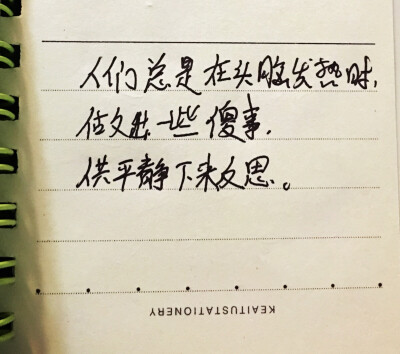 人们总是在头脑发热时,
做出一些傻事,
供平静下来反思。
KEAITUSTATIONERY